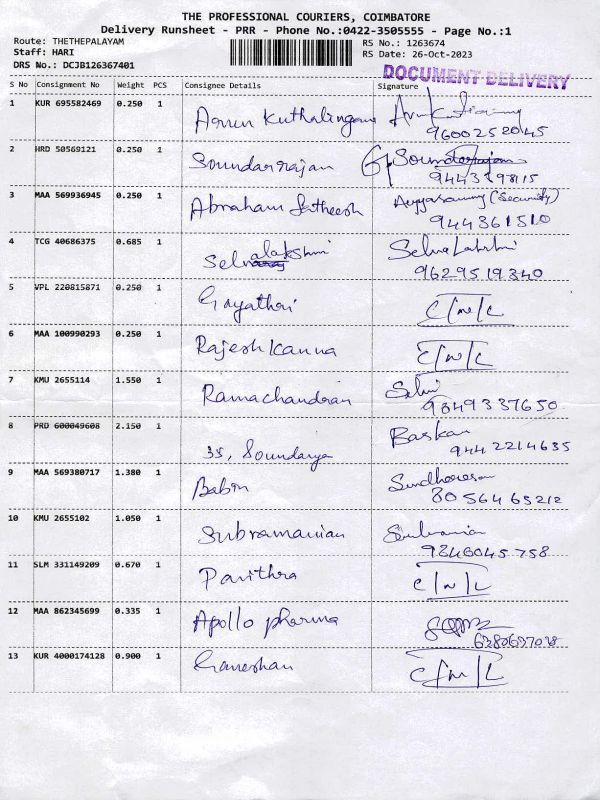 THE PROFESSIONAL COURIERS, COIMBATORE
Delivery Runsheet - PRR - Phone No.:0422-3505555 - Page No.:1
Route: THETHEPALAYAM
Staff: HARI
DRS No.: DCJB126367401
RS No.: 1263674
RS Date: 26-Oct-2023
DOCUMENT DELIVERY
S No Consignment No Weight PCS Consignee Details Signature
1 KUR 695582469 0.250 1 Arun Kuthalingam
9600252045
2 HRD 50569121 0.250 1 Soundarrajan Soundarrajan
3 MAA 569936945 0.250 1 Abraham Satheesh Ayyasamy (Security)
944361510
4 TCG 40686375 0.685 1 Selvalakshmi Selvalakshmi
9629519340
5 VPL 220815871 0.250 1 Gayathri C/N/L
6 MAA 100990293 0.250 1 Rajesh Kanna C/N/L
7 KMU 2655114 1.550 1 Ramachandran Selvi
9849337650
8 PRD 600049608 2.150 1 35, Soundarya Baskar
9442214635
9 MAA 569380717 1.380 1 Babin
8056465212
10 KMU 2655102 1.050 1 Subramanian
9846045758
11 SLM 331149209 0.670 1 Pavithra C/N/L
12 MAA 862345699 0.335 1 Apollo pharma
13 KUR 4000174128 0.900 1 Ganeshan C/N/L